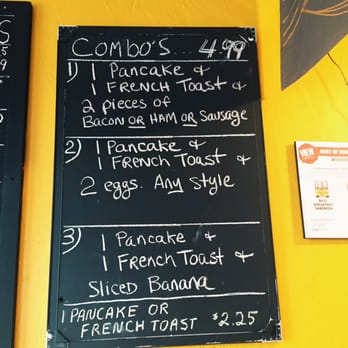 COMBO'S.... 4.99
1) 1 Pancake &
1 FRENCH Toast &
2 pieces of
Bacon OR HAM OR Sausage
2) 1 Pancake &
1 FRENCH Toast &
2 eggs. Any Style
3) 1 Pancake &
1 French Toast &
Sliced Banana
1 PANCAKE OR
FRENCH TOAST $2.25
S
5
9
BEST
BREAKFAST
SANDWICH